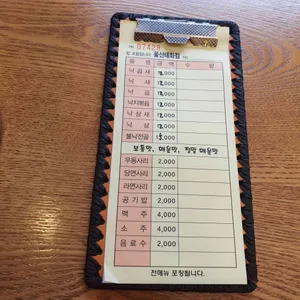 No. 07428
울산태화점
품 명 금 액 수 량
낙곱새 12,000
낙 새 12,000
낙 곱 12,000
낙지볶음 12,000
낙삼새 12,000
낙 삼 12,000
불낙전골 15,000
보통맛, 매운맛, 정말 매운맛
우동사리 2,000
당면사리 2,000
라면사리 2,000
공 기 밥 2,000
맥 주 4,000
소 주 4,000
음 료 수 2,000
전메뉴 포장됩니다.